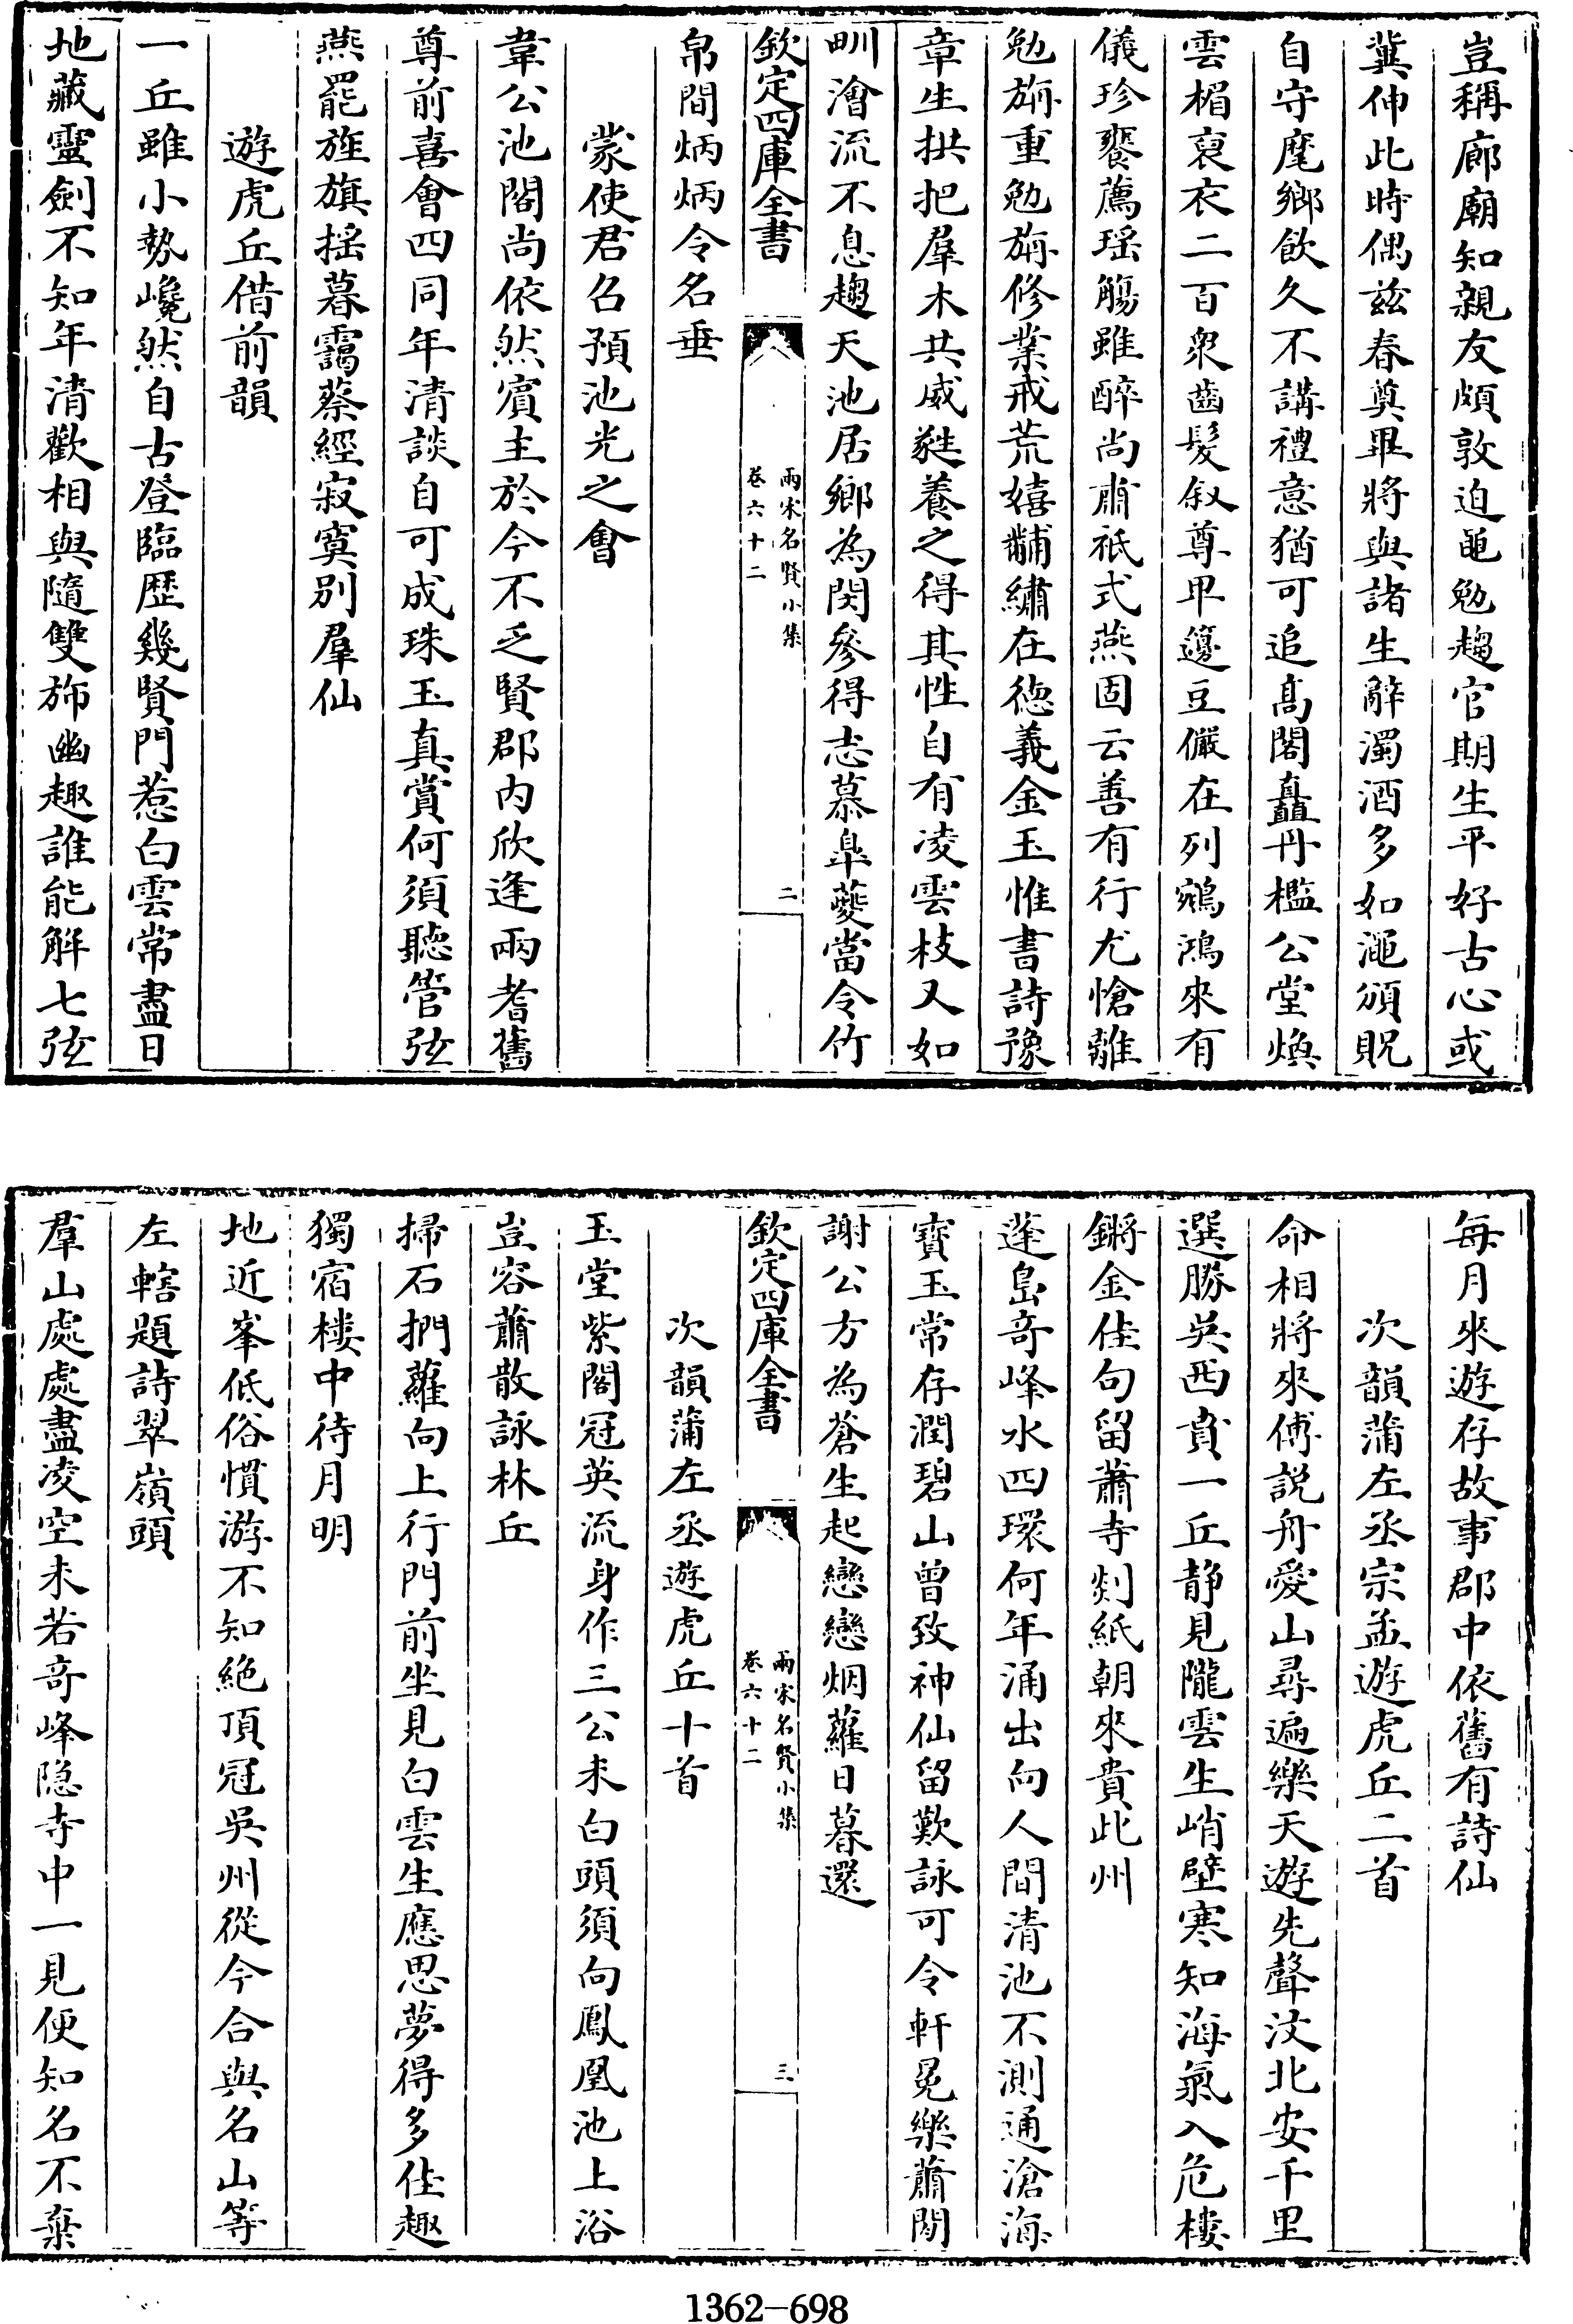 豈稱廊廟知親友頗敦迫黽勉趨官期生平好古心或
冀伸此時偶兹春奠畢將與諸生辭濁酒多如澠頒貺
自守麾鄉飲久不講禮意猶可追髙閣矗丹檻公堂煥
雲楣裒衣二百衆齒髮叙尊卑籩豆儼在列鵷鴻來有
儀珍饔薦瑶觴雖醉尚肅祇式燕固云善有行尤愴離
勉旃重勉旃修業戒荒嬉黼繡在徳義金玉惟書詩豫
章生拱把羣木共威蕤養之得其性自有凌雲枝又如
甽澮流不息趨天池居鄉為閔參得志慕臯夔當令竹
欽定四庫全書
兩宋名賢小集
卷六十二
二
帛間炳炳令名垂
蒙使君召預池光之會
韋公池閣尚依然賓主於今不乏賢郡内欣逢兩耆舊
尊前喜會四同年清談自可成珠玉真賞何須聽管弦
燕罷旌旗揺暮靄蔡經寂寞别羣仙
遊虎丘借前韻
一丘雖小勢巉然自古登臨歴幾賢門惹白雲常盡日
地藏靈劍不知年清歡相與隨雙斾幽趣誰能解七弦
每月來遊存故事郡中依舊有詩仙
次韻蒲左丞宗孟遊虎丘二首
命相將來傅説舟愛山尋遍樂天遊先聲汶北安千里
選勝吳西賁一丘静見隴雲生峭壁寒知海氣入危樓
鏘金佳句留蕭寺剡紙朝來貴此州
蓬島竒峰水四環何年涌出向人間清池不測通滄海
寳玉常存潤碧山曾致神仙留歎詠可令軒冕樂蕭閑
謝公方為蒼生起戀戀烟蘿日暮還
欽定四庫全書
兩宋名賢小集
卷六十二
三
次韻蒲左丞遊虎丘十首
玉堂紫閣冠英流身作三公未白頭須向鳳凰池上浴
豈容蕭散詠林丘
掃石捫蘿向上行門前坐見白雲生應思夢得多佳趣
獨宿樓中待月明
地近峯低俗慣游不知絶頂冠吳州從今合與名山等
左轄題詩翠嶺頭
羣山處處盡凌空未若竒峰隐寺中一見便知名不棄
1362—698